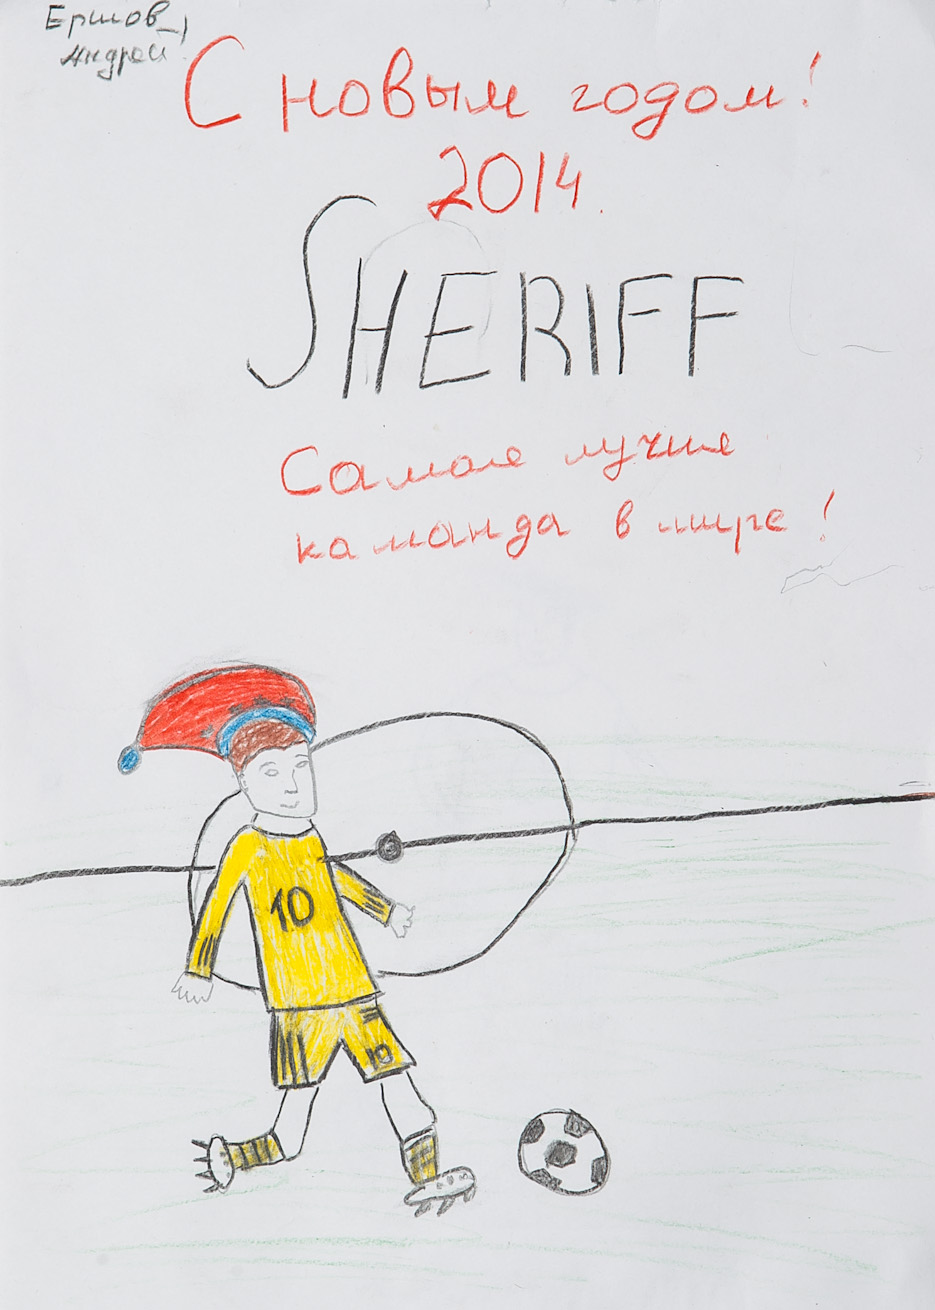 Ершов
Андрей
С новым годом!
2014.
SHERIFF
Самая лучшя
каманда в мире!
10
10